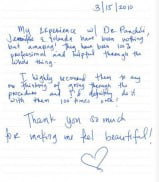 3/15/2010
My experience w/ Dr. Pancholi,
Jennifer & Yolanda have been nothing
but amazing! They have been 100%
professional and helpful through the
whole thing.
I highly recommend them to any
one thinking of going through the
procedures and I'd definitely do it
with them 100 times over!
Thank you so much
for making me feel beautiful!